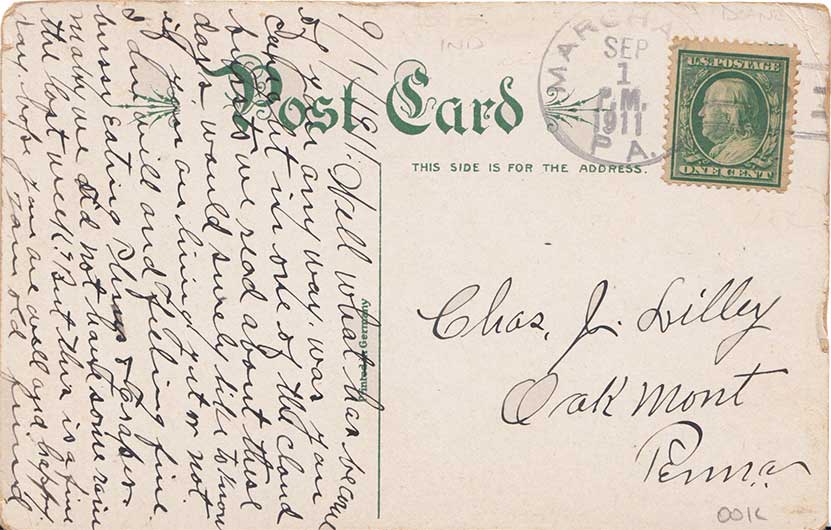 Post Card
THIS SIDE IS FOR THE ADDRESS.
Printed in Germany
MARCHA
SEP
1
P.M.
1911
PA.
U.S. POSTAGE
ONE CENT
IND
9/1/1911. Well what has become
of you any way. was you
caught in one of the cloud
bursts we read about these
days. would surely like to know
if your on living yet or not.
I am well and feeling fine.
buisse eating Plums & Grapes.
main we did not have some rain
the last week. But this is a fine
day, hope you are well and happy
your old friend
Chas. J. Lilley
Oakmont
Penna
001K